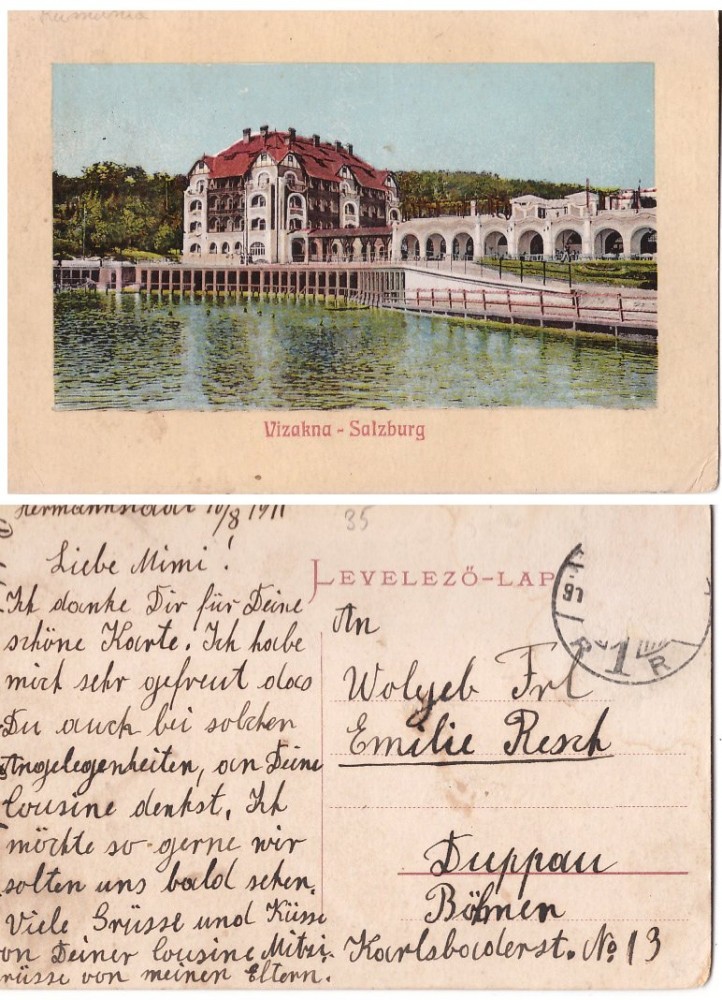 Rumania
Vizakna - Salzburg
Hermannstadt 10/8 1911
35
Liebe Mimi!
Ich danke Dir für Deine
schöne Karte. Ich habe
mich sehr gefreut das
Du auch bei solchen
Angelegenheiten, an Deine
Cousine denkst. Ich
möchte so gerne wir
solten uns bald sehen.
Viele Grüsse und Küsse
von Deiner Cousine Mitzi.
Grüsse von meinen Eltern.
LEVELEZŐ-LAP
An
Wolgeb Frl
Emilie Resch
Duppau
Böhmen
Karlsbaderst. No 13
1
R